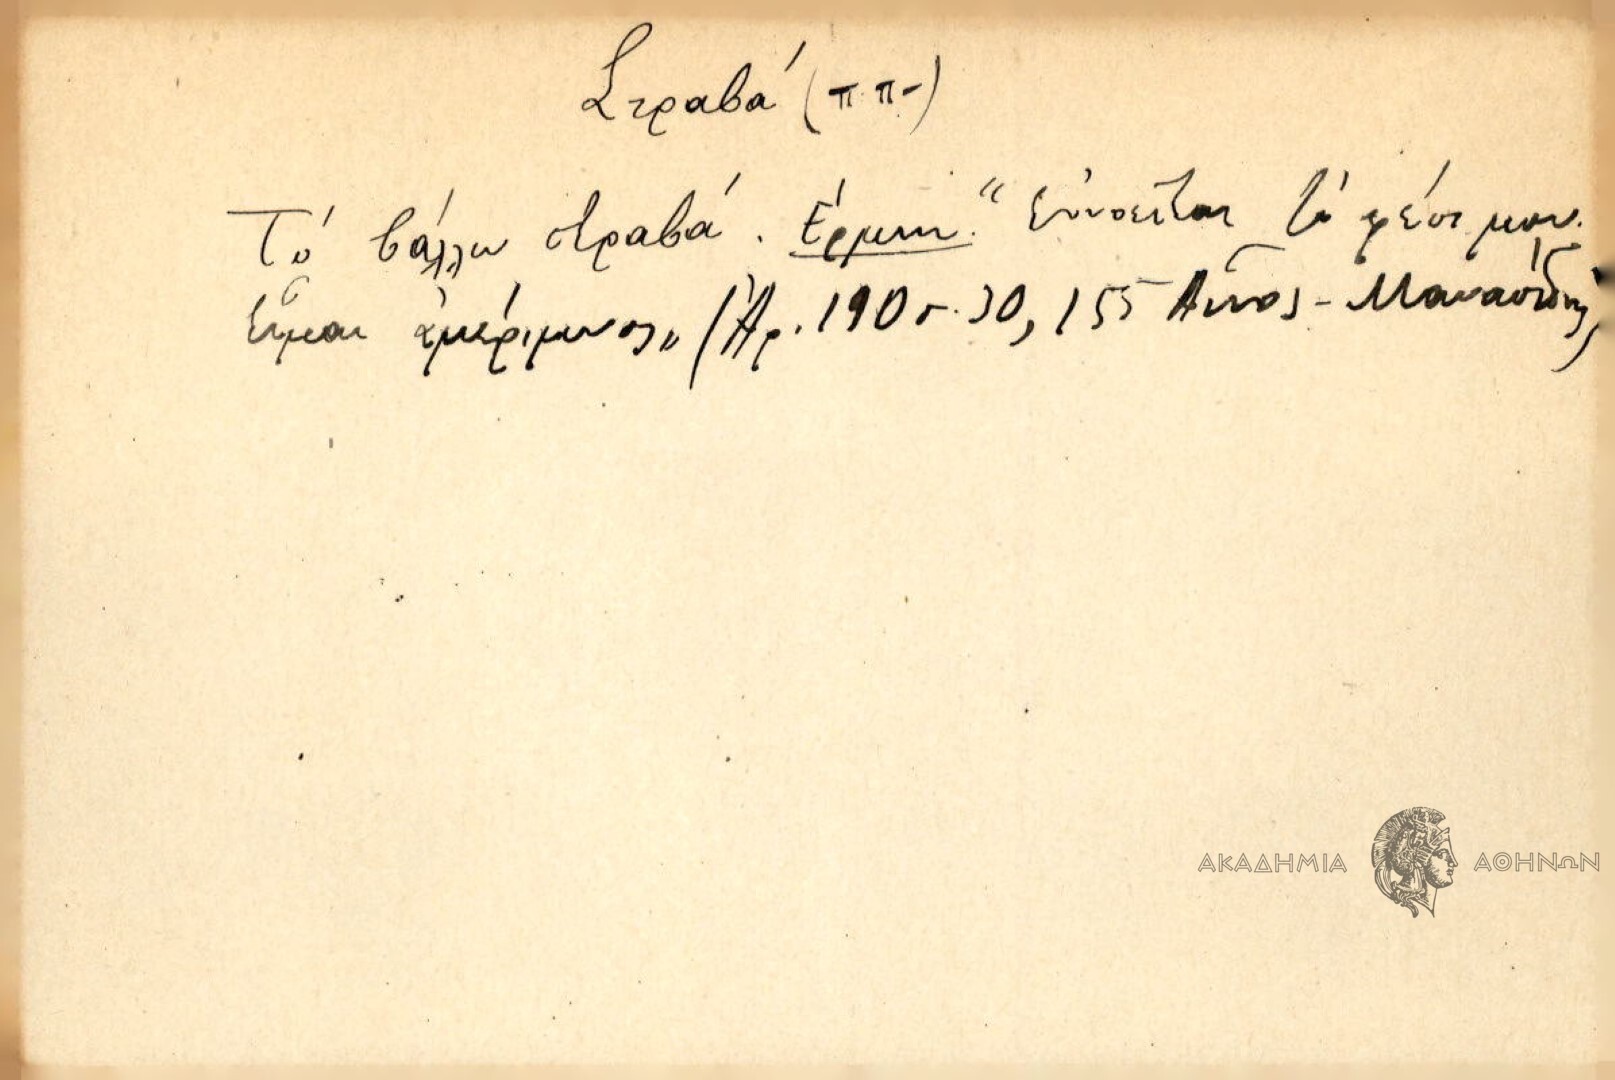 Στραβά (ππ-)
Τό βάλλω στραβά. Ἑρμην. "Ἐννοεῖται τό φέσι μου.
Εἶμαι ἀμέριμνος" (Ἀρ. 190 σ. 30, 155 Αἶνος - Μανασσείδης)
ΑΚΑΔΗΜΙΑ ΑΘΗΝΩΝ